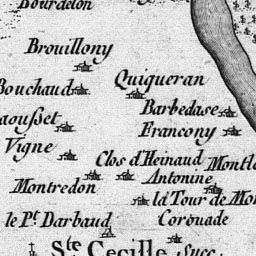 Bourdelon
Brouillony
Quiqueran
Bouchaud
Barbedase
Francony
Vigne
Clos d'Heinaud
Antonine
Montredon
la Tour de
le Pt. Darbaud
Coronade
Ste. Cecille